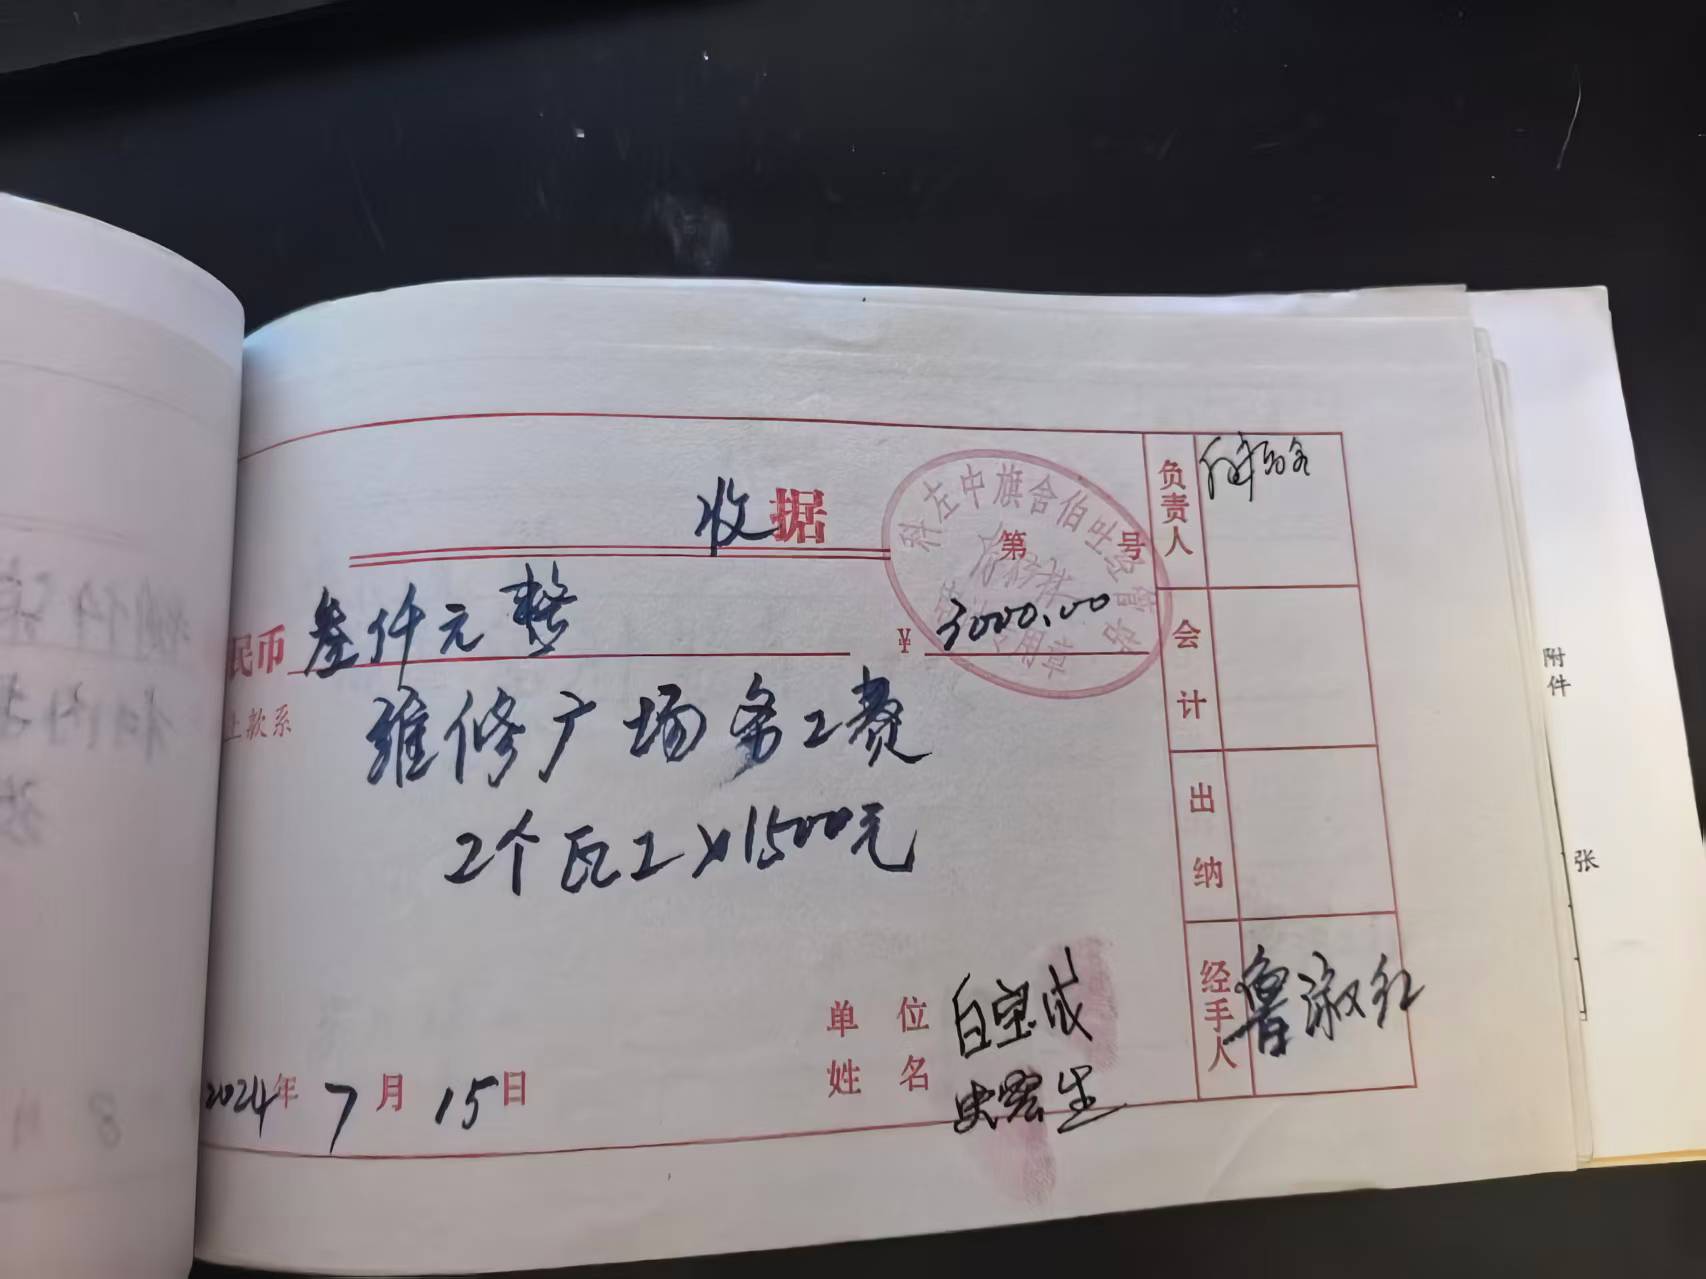 收据
第 号
民币 叁仟元整 ¥ 3000.00
上款系 维修广场务工费
2个瓦工×1500元
单位 白宝成
姓名
2024年 7月 15日
负责人
会计
出纳
经手人 鲁淑红
科左中旗舍伯吐
用章
附件
张